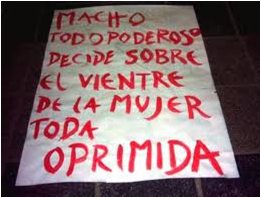 MACHO
TODOPODEROSO
DECIDE SOBRE
EL VIENTRE
DE LA MUJER
TODA
OPRIMIDA